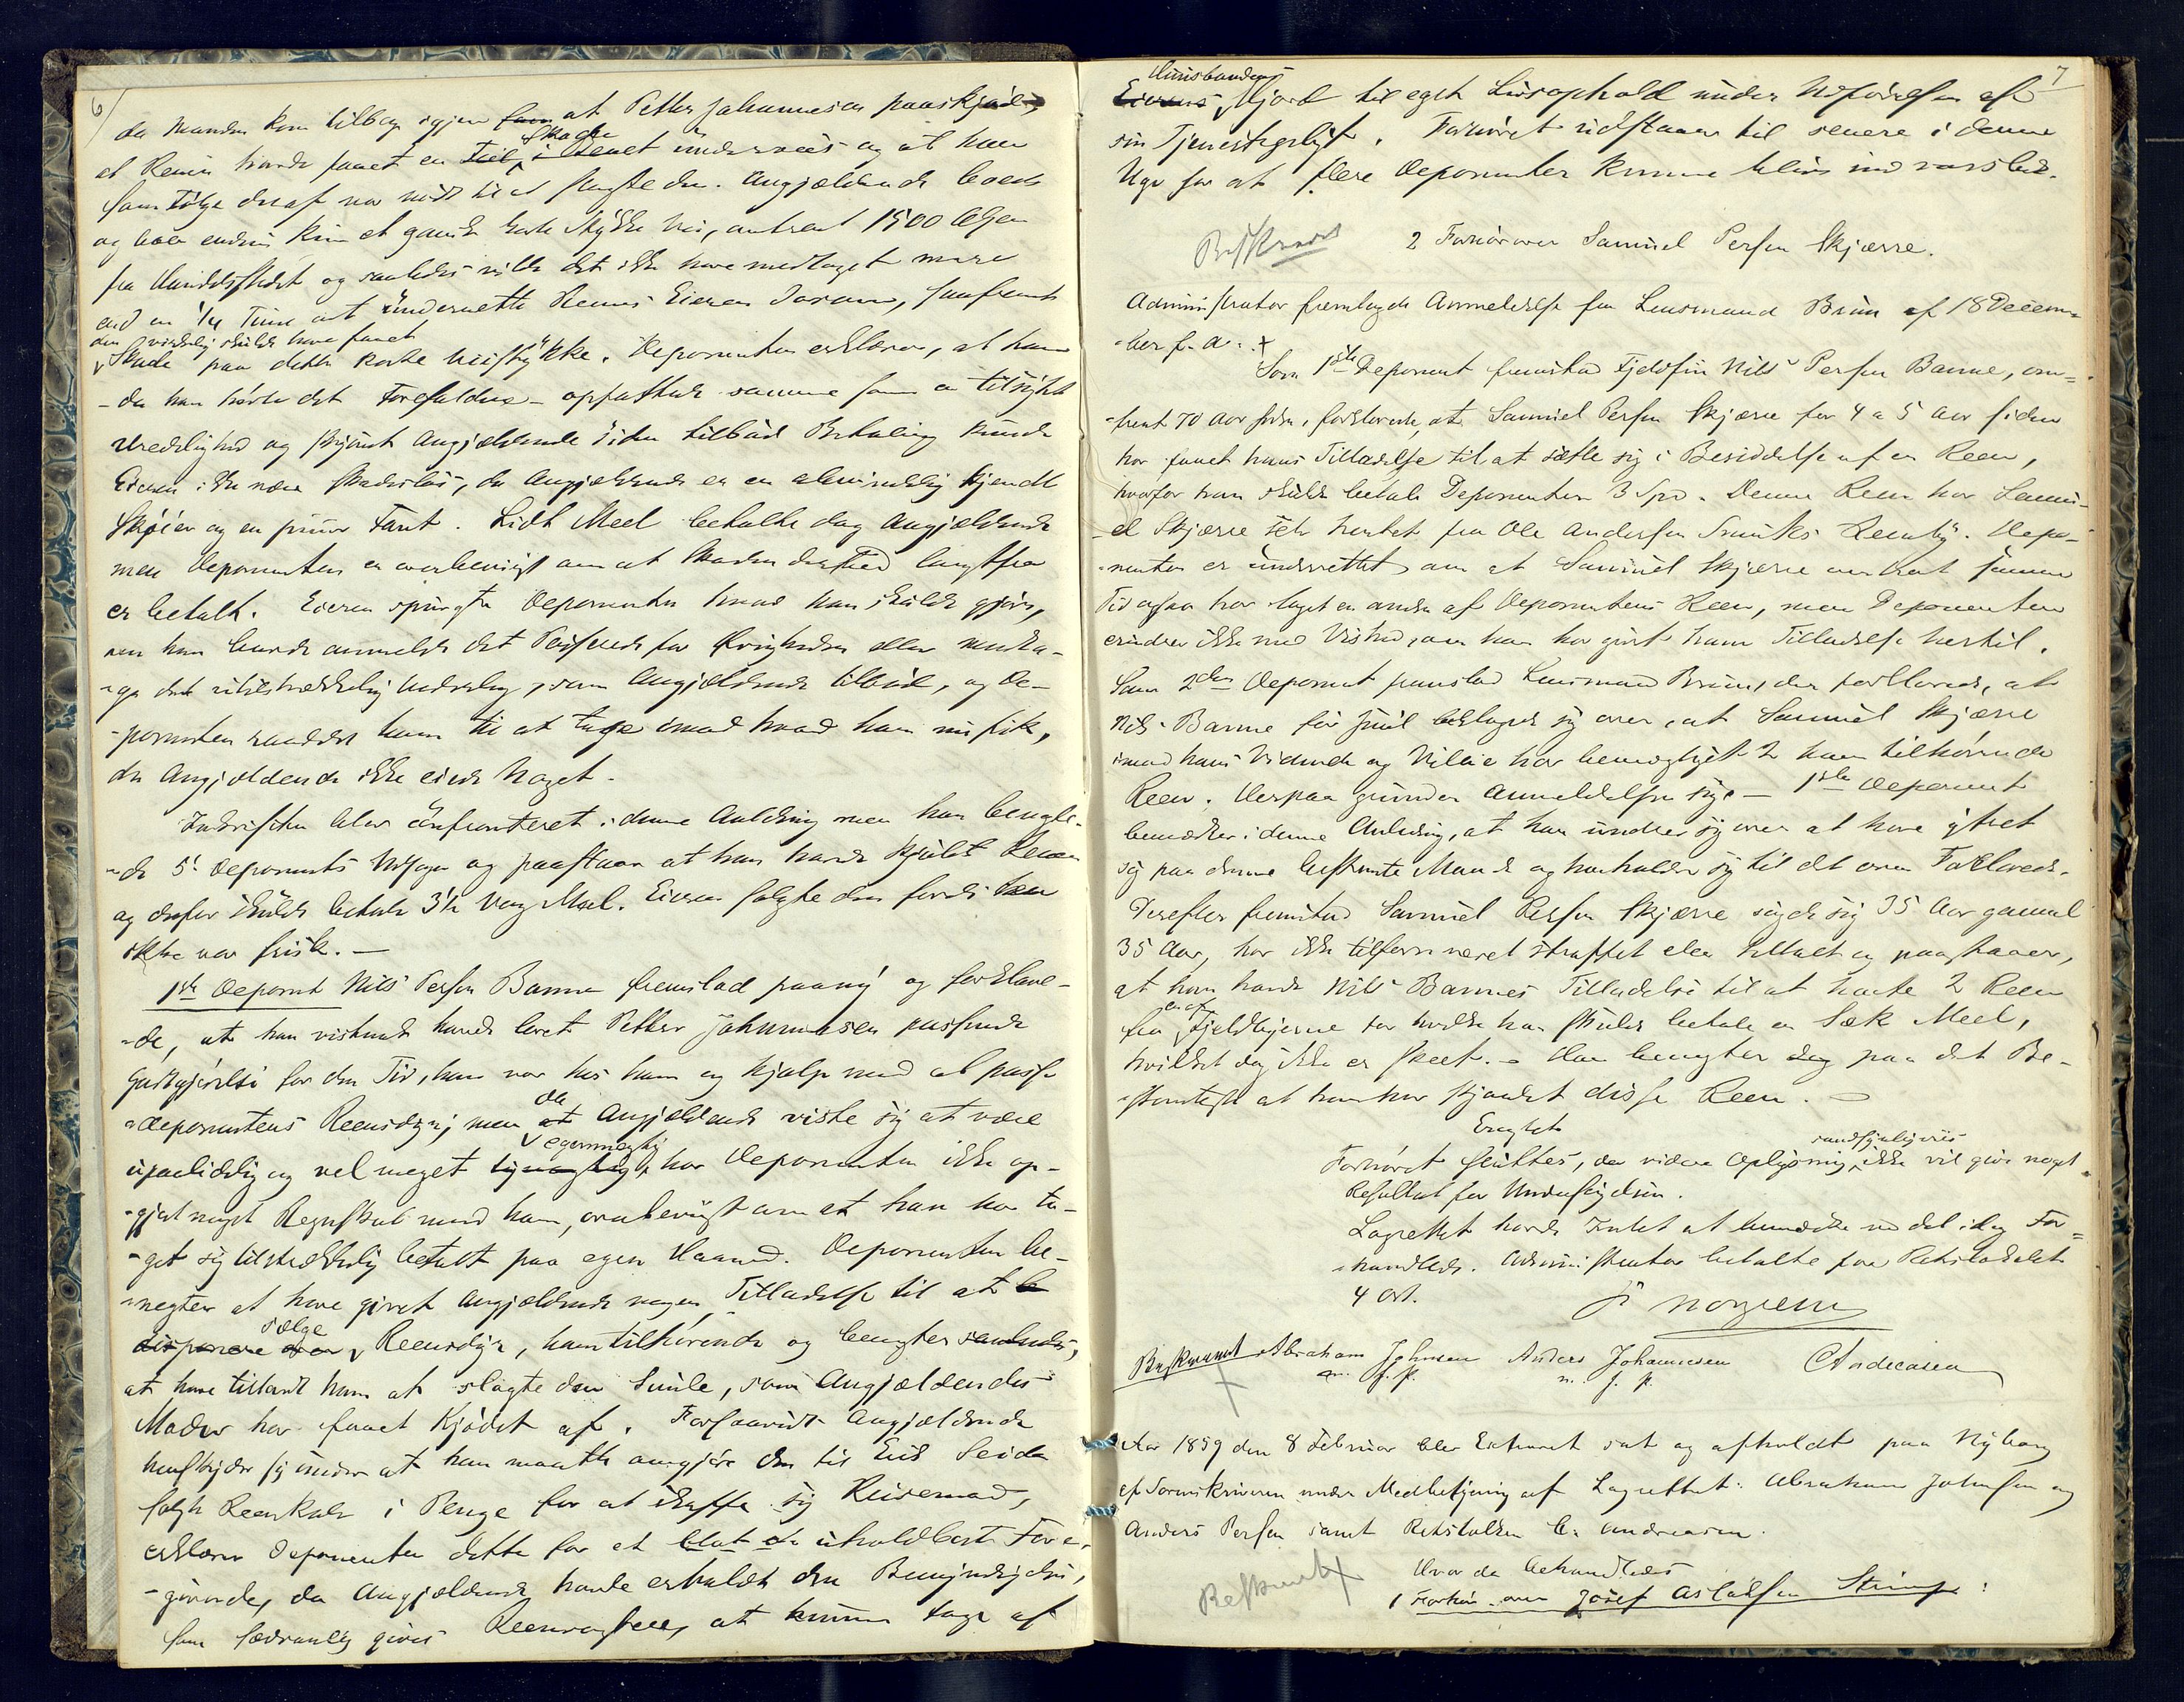 6/
da Manden kom tilbage igjen at Petter Johannesen paaskjød,
at Renen havde faaet en Skade i Benet underveis og at han
som Følge deraf var nødt til at slagte den. Angjældende boede
og boer endnu kun et ganske kort Stykke Vei, omtrent 1500 Alen
fra Handelsstedet og saaledes vilde det ikke have medtaget mere
end en 1/4 Time at underrette Renens Eier derom, saafremt
den virkelig skulde have faaet
Skade paa dette korte Veistykke. Deponenten erklærer, at han
- da han hørte det Forefaldne - opfattede samme som en tilsigtet
Uredelighed og skjønt Angjældende siden tilbød Betaling kunde
Eieren ikke være skadesløs, da Angjældende er en almindelig kjendt
Skøier og en Fant. Lidt Meel betalte dog Angjældende
men Deponenten er overbeviist om at Skaden derved langtfra
er betalt. Eieren spurgte Deponenten hvad han skulde gjøre,
om han burde anmelde det Passerede for Øvrigheden eller modta-
-ge det utilstrækkelig Vederlag, som Angjældende tilbød, og De-
-ponenten raadede ham til at tage imod hvad han nu fik,
da Angjældende ikke eiede Noget.
Inkvisiten blev confronteret i denne Anledning men han benægte-
-de 5 Deponents Udsagn og paastaar at han havde kjøbt Renen
og derfor skulde betale 3 1/2 Vog Meel. Eieren solgte den fordi den
ikke var frisk. —
1ste Deponent Nils Persen Banne fremstod paany og forklare-
-de, at han vistnok havde lovet Petter Johannesen passende
Godtgjørelse for den Tid, han var hos ham og hjalp med at passe
Deponentens Reensdyr; men da Angjældende viste sig at være
upaalidelig og vel meget egenmægtig, har Deponenten ikke op-
-gjort noget Regnskab med ham, overbeviist om at han har ta-
-get sig tilstrækkelig betalt paa egen Haand. Deponenten be-
-negter at have givet Angjældende nogen Tilladelse til at
sælge Reensdyr, ham tilhørende og benegter saaledes,
at have tilladt ham at slagte den Simle, som Angjældendes
Moder har faaet Kjødet af. Forsaavidt Angjældende
undskylder sig under at han maatte omgjøre den til Erik Seida
solgte Reenkalv i Penge for at skaffe sig Reisemad,
erklærer Deponenten dette for et uholdbart Fore-
-givende, da Angjældende havde erholdt den Bemyndigelse,
som sædvanlig gives Reensvogtere, at kunne tage af

7
Huusbondens Hjord til eget Livsophold under Udførelsen af
sin Tjenestepligt. Forhøret udstaaer til senere i denne
Uge for at flere Deponenter kunne blive indvarslede.
Beskrevet 2 Forhør over Samuel Persen Skjærre.
Administrator fremlagde Anmeldelse fra Lensmand Bruun af 18 Decem-
-ber f. A. +
Som 1ste Deponent fremstod Fjeldfin Nils Persen Banne, om-
-trent 70 Aar, forklarede, at Samuel Persen Skjærre for 4 a 5 Aar siden
har faaet hans Tilladelse til at sætte sig i Besiddelse af en Reen,
hvorfor han skulde betale Deponenten 3 Spd. Denne Reen har Samu-
-el Skjærre selv hentet fra Ole Andersen Reenby. Depo-
-nenten er underrettet om at Samuel Skjærre omtrent samme
Tid ogsaa har taget en anden af Deponentens Reen, men Deponenten
erindrer ikke med Vished, om han har givet ham Tilladelse hertil.
Som 2den Deponent fremstod Lensmand Bruun, der forklarede, at
Nils Banne før Juul beklagede sig over, at Samuel Skjærre
imod hans Vidende og Villie har bemægtiget 2 ham tilhørende
Reen. Herpaa grunder Anmeldelsen sig. — 1ste Deponent
bemærker i denne Anledning, at han undrer sig over at have yttret
sig paa denne bestemte Maade og henholder sig til det ovenfor Forklarede.
Derefter fremstod Samuel Persen Skjærre sagde sig 35 Aar gammel
35 Aar, har ikke tilforn været straffet eller tiltalt og paastaaer,
at han havde Nils Bannes Tilladelse til at hente 2 Reen
fra Fjeldbyerne for hvilke han skulde betale en Sæk Meel,
hvilket dog ikke er skeet. - Han benegter dog paa det Be-
-stemteste at han har stjaalet disse Reen. —
Eragtet
Forhøret sluttes, da videre Oplysning sandsynligviis ikke vil give noget
Resultat for Undersøgelsen.
Lagrettet havde Intet at bemærke ved det idag For-
-handlede. Administrator betalte for Retslocalet
4 Ort.
Beskrevet Abraham Johnsen Anders Johannesen C Andreasen
m. f. P. m. f. P.
Aar 1859 den 8 Februar blev Extraret sat og afholdt paa Nyborg
af Sorenskriveren under Medbetjening af Lagrettet: Abraham Johnsen og
Anders Persen samt Retstolken C. Andreasen.
Hvor da behandledes
Beskrevet + 1 Forhør over Josef Aslaksen :